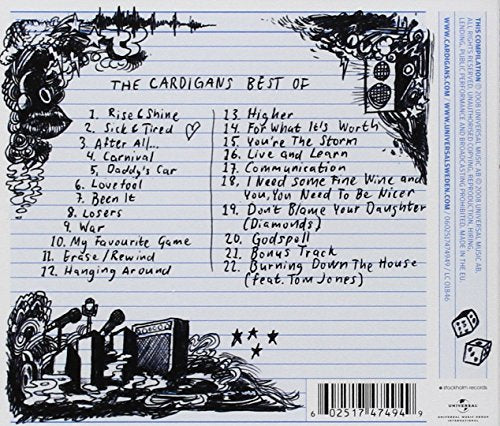 THE CARDIGANS BEST OF
1. Rise & Shine
2. Sick & Tired
3. After All...
4. Carnival
5. Daddy's Car
6. Lovefool
7. Been It
8. Losers
9. War
10. My Favourite Game
11. Erase/Rewind
12. Hanging Around
13. Higher
14. For What It's Worth
15. You're The Storm
16. Live and Learn
17. Communication
18. I Need Some Fine Wine and
You, You Need To Be Nicer
19. Don't Blame Your Daughter
(Diamonds)
20. Godspell
21. Bonus Track
22. Burning Down The House
(feat. Tom Jones)
THIS COMPILATION ℗ 2008 UNIVERSAL MUSIC AB. © 2008 UNIVERSAL MUSIC AB.
ALL RIGHTS RESERVED. UNAUTHORISED COPYING, REPRODUCTION, HIRING,
LENDING, PUBLIC PERFORMANCE AND BROADCASTING PROHIBITED. MADE IN THE EU.
WWW.CARDIGANS.COM / WWW.UNIVERSALSWEDEN.COM / 0602517474949 / LC 01846
stockholm records
UNIVERSAL
UNIVERSAL MUSIC GROUP
INTERNATIONAL
6 02517 47494 9